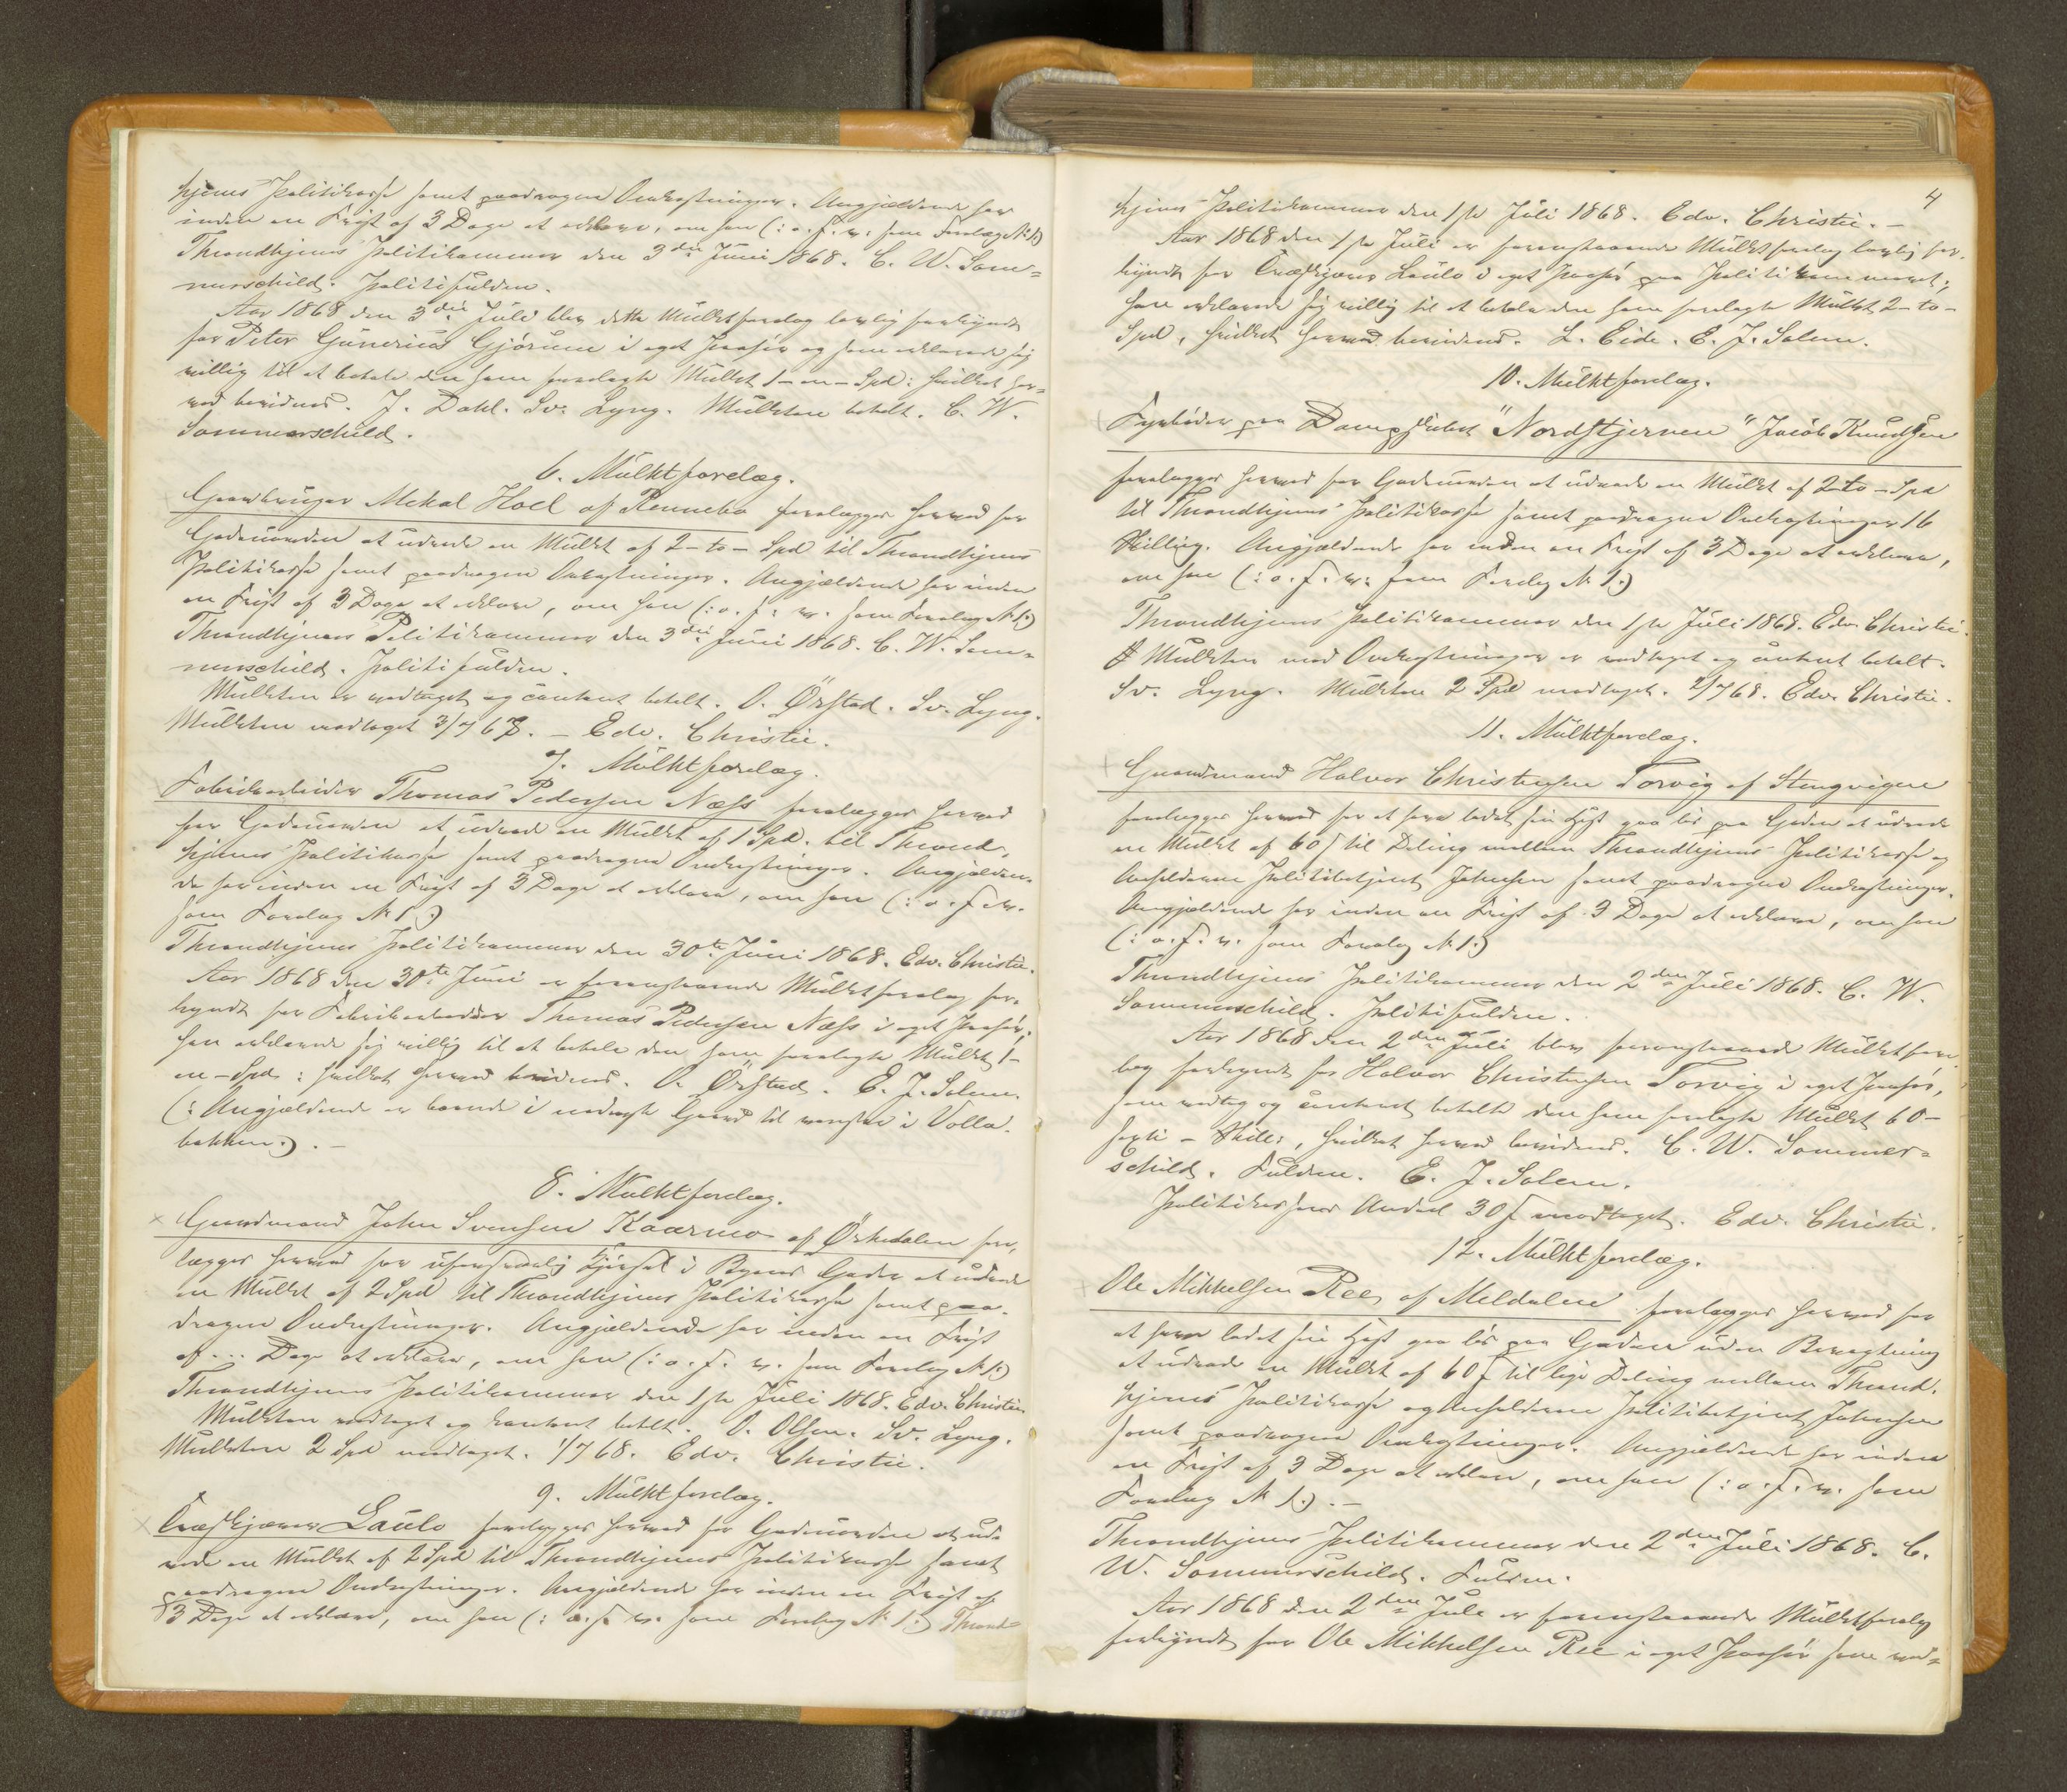 hjems Politikasse samt paadragne Omkostninger. Angjældende har
inden en Frist af 3 Dage at erklære, om han (: o. s. v. som Forelæg № 1.)
Throndhjems Politikammer den 3die Juni 1868. C. W. Som=
merschild. Politifuldm.
Aar 1868 den 3die Juli blev dette Mulktforelæg lovlig forkyndt
for Peter Gunerius Gjørum i eget Paahør og som erklærede sig
villig til at betale den ham forelagte Mulkt 1 – en – Spd: hvilket her=
ved bevidnes. J. Dahl. Sv. Lyng. Mulkten betalt. C. W.
Sommerschild.
6. Mulktforelæg.
Gaardbruger Mekal Hoel af Rennebo forelægges herved for
Gadeuorden at udrede en Mulkt af 2 – to – Spd til Throndhjems
Politikasse samt paadragne Omkostninger. Angjældende har inden
en Frist af 3 Dage at erklære, om han (: o. s. v. som Forelæg № 1.)
Throndhjems Politikammer den 3die Juni 1868. C. W. Som=
merschild. Politifuldm.
Mulkten er modtaget og contant betalt. O. Ørstad. Sv. Lyng.
Mulkten modtaget 3/7 68. – Edv. Christie.
7. Mulktforelæg.
Fabrikarbeider Thomas Pedersen Næss forelægges herved
for Gadeuorden at udrede en Mulkt af 1 Spd. til Thrond=
hjems Politikasse samt paadragne Omkostninger. Angjælden=
de har inden en Frist af 3 Dage at erklære, om han (: o. s. v.
som Forelæg № 1.)
Throndhjems Politikammer den 30te Juni 1868. Edv. Christie.
Aar 1868 den 30te Juni er foranstaaende Mulktforelæg for=
kyndt for Fabrikarbeider Thomas Pedersen Næss i eget Paahør;
han erklærede sig villig til at betale den ham forelagte Mulkt 1 –
en – Spd: hvilket herved bevidnes. O. Ørstad. E. J. Solem.
(: Angjældende er boende i nederste Gaard til venstre i Volla=
bakken.) . –
8. Mulktforelæg.
× Gaardmand John Svensen Kaarmo af Ørkedalen fore=
lægges herved for uforsvarlig Kjørsel i Byens Gader at udrede
en Mulkt af 2 Spd til Throndhjems Politikasse samt paa=
dragne Omkostninger. Angjældende har inden en Frist
af ... Dage at erklære, om han (: o. s. v. som Forelæg № 1.)
Throndhjems Politikammer den 1ste Juli 1868. Edv. Christie
Mulkten modtaget og kontant betalt. O. Olsen. Sv. Lyng.
Mulkten 2 Spd modtaget. 1/7 68. Edv. Christie.
9. Mulktforelæg.
× Træskjærer Laulo forelægges herved for Gadeuorden at ud=
rede en Mulkt af 2 Spd til Throndhjems Politikasse samt
paadragne Omkostninger. Angjældende har inden en Frist af
3 Dage at erklære, om han (: o. s. v. som Forelæg № 1.) Thrond=
4
hjems Politikammer den 1ste Juli 1868. Edv. Christie. –
Aar 1868 den 1ste Juli er foranstaaende Mulktforelæg lovlig for=
kyndt for Træskjærer Laulo i eget Paahør paa Politikammeret;
han erklærede sig villig til at betale den ham forelagte Mulkt 2 – to –
Spd, hvilket herved bevidnes. L. Eide. E. J. Solem.
10. Mulktforelæg.
Fyrbøder paa Dampskibet "Nordstjernen" Jacob Knudsen
forelægges herved for Gadeuorden at udrede en Mulkt af 2 – to – Spd
til Throndhjems Politikasse samt paadragne Omkostninger 16
Skilling. Angjældende har inden en Frist af 3 Dage at erklære,
om han (: o. s. v. som Forelæg № 1.)
Throndhjems Politikammer den 1ste Juli 1868. Edv. Christie.
Mulkten med Omkostninger er modtaget og contant betalt.
Sv. Lyng. Mulkten 2 Spd modtaget. 2/7 68. Edv. Christie.
11. Mulktforelæg.
Gaardmand Halvor Christensen Torvig af Stangvigen
forelægges herved for at have ladet sin Hest gaa løs paa Gaden at udrede
en Mulkt af 60 ß til Deling mellem Throndhjems Politikasse og
Anholderen Politibetjent Johnsen samt paadragne Omkostninger.
Angjældende har inden en Frist af 3 Dage at erklære, om han
(: o. s. v. som Forelæg № 1.)
Throndhjems Politikammer den 2den Juli 1868. C. W.
Sommerschild. Politifuldm.
Aar 1868 den 2den Juli blev foranstaaende Mulktfore=
læg forkyndt for Halvor Christensen Torvig i eget Paahør,
som vedtog og contant betalte den ham forelagte Mulkt 60 –
sexti – Skill:, hvilket herved bevidnes. C. W. Sommer=
schild. Fuldm. E. J. Solem.
Politikassens Andel 30 ß modtaget. Edv. Christie.
12. Mulktforelæg.
Ole Mikkelsen Ree af Meldalen forelægges herved for
at have ladet sin Hest gaa løs paa Gaden uden Bevogtning
at udrede en Mulkt af 60 ß til lige Deling mellem Thrond=
hjems Politikasse og Anholderen Politibetjent Johnsen
samt paadragne Omkostninger. Angjældende har inden
en Frist af 3 Dage at erklære, om han (: o. s. v. som
Forelæg № 1.) . –
Throndhjems Politikammer den 2den Juli 1868. C.
W. Sommerschild. Fuldm.
Aar 1868 den 2den Juli er foranstaaende Mulktforelæg
forkyndt for Ole Mikkelsen Ree i eget Paahør som ved=